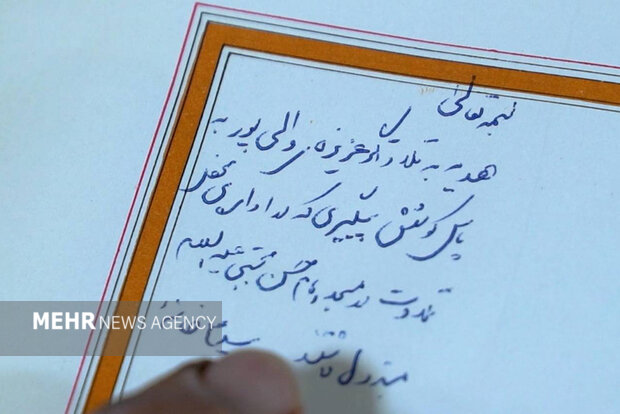 بسمه تعالی
هدیه به تلاوتگر عزیز والی پور به
پاس کوشش پیگیری که در اداره‌ی محفل
تلاوت در مسجد امام حسن مجتبی علیه السلام
مبذول داشتند
MEHR NEWS AGENCY